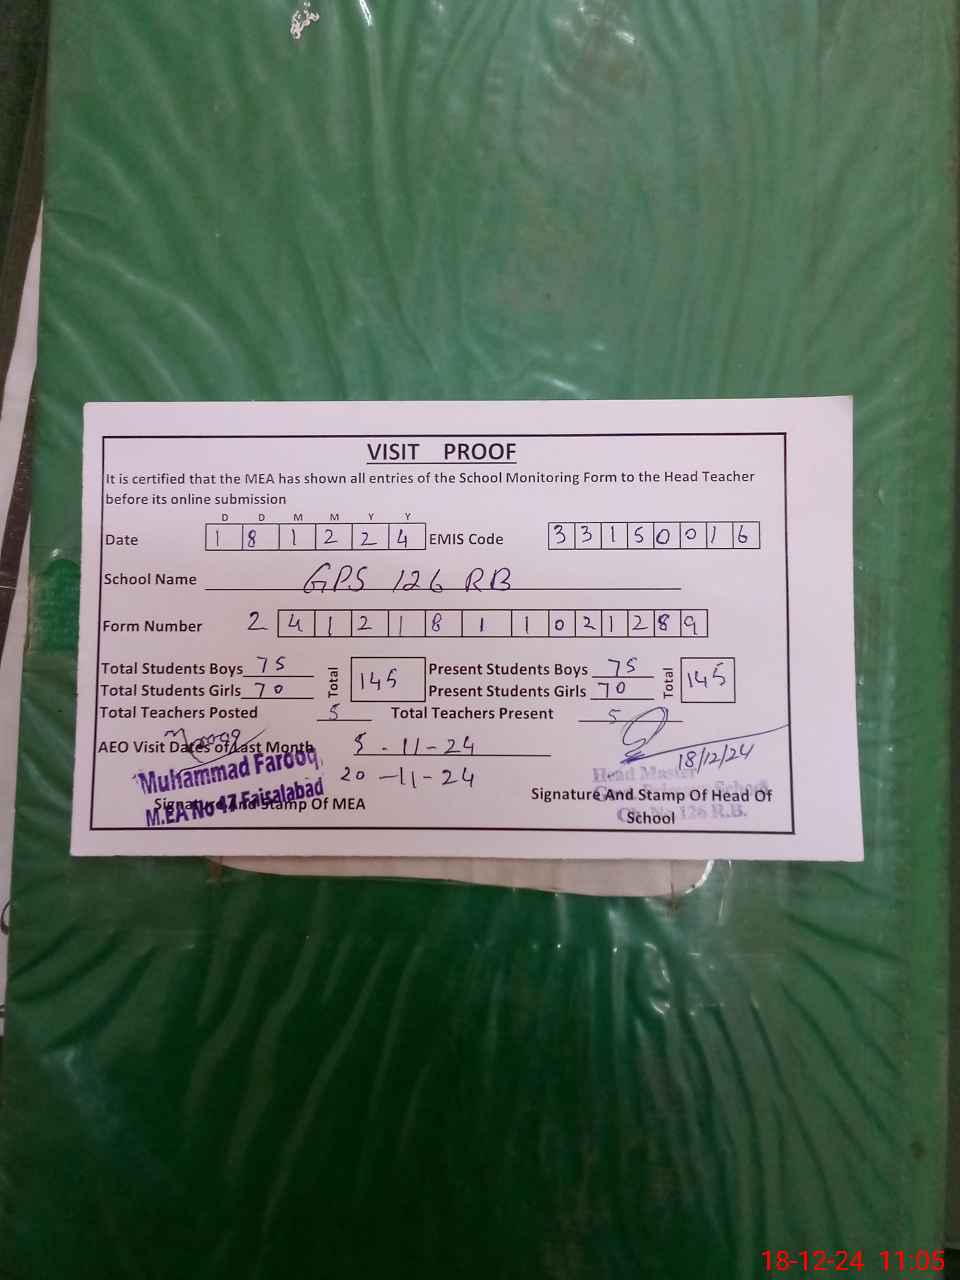 VISIT PROOF
It is certified that the MEA has shown all entries of the School Monitoring Form to the Head Teacher
before its online submission
D D M M Y Y
Date 1 8 1 2 2 4 EMIS Code 3 3 1 5 0 0 1 6
School Name GPS 126 RB
Form Number 2 4 1 2 1 8 1 1 0 2 1 2 8 9
Total Students Boys 75 Total 145 Present Students Boys 75 Total 145
Total Students Girls 70 Present Students Girls 70
Total Teachers Posted 5 Total Teachers Present 5
AEO Visit Dates of Last Month 5-11-24 18/12/24
Muhammad Farooq 20-11-24 Head Master
M.EA No 17 Faisalabad
Signature And Stamp Of MEA Signature And Stamp Of Head Of
School 126 R.B.
18-12-24 11:05